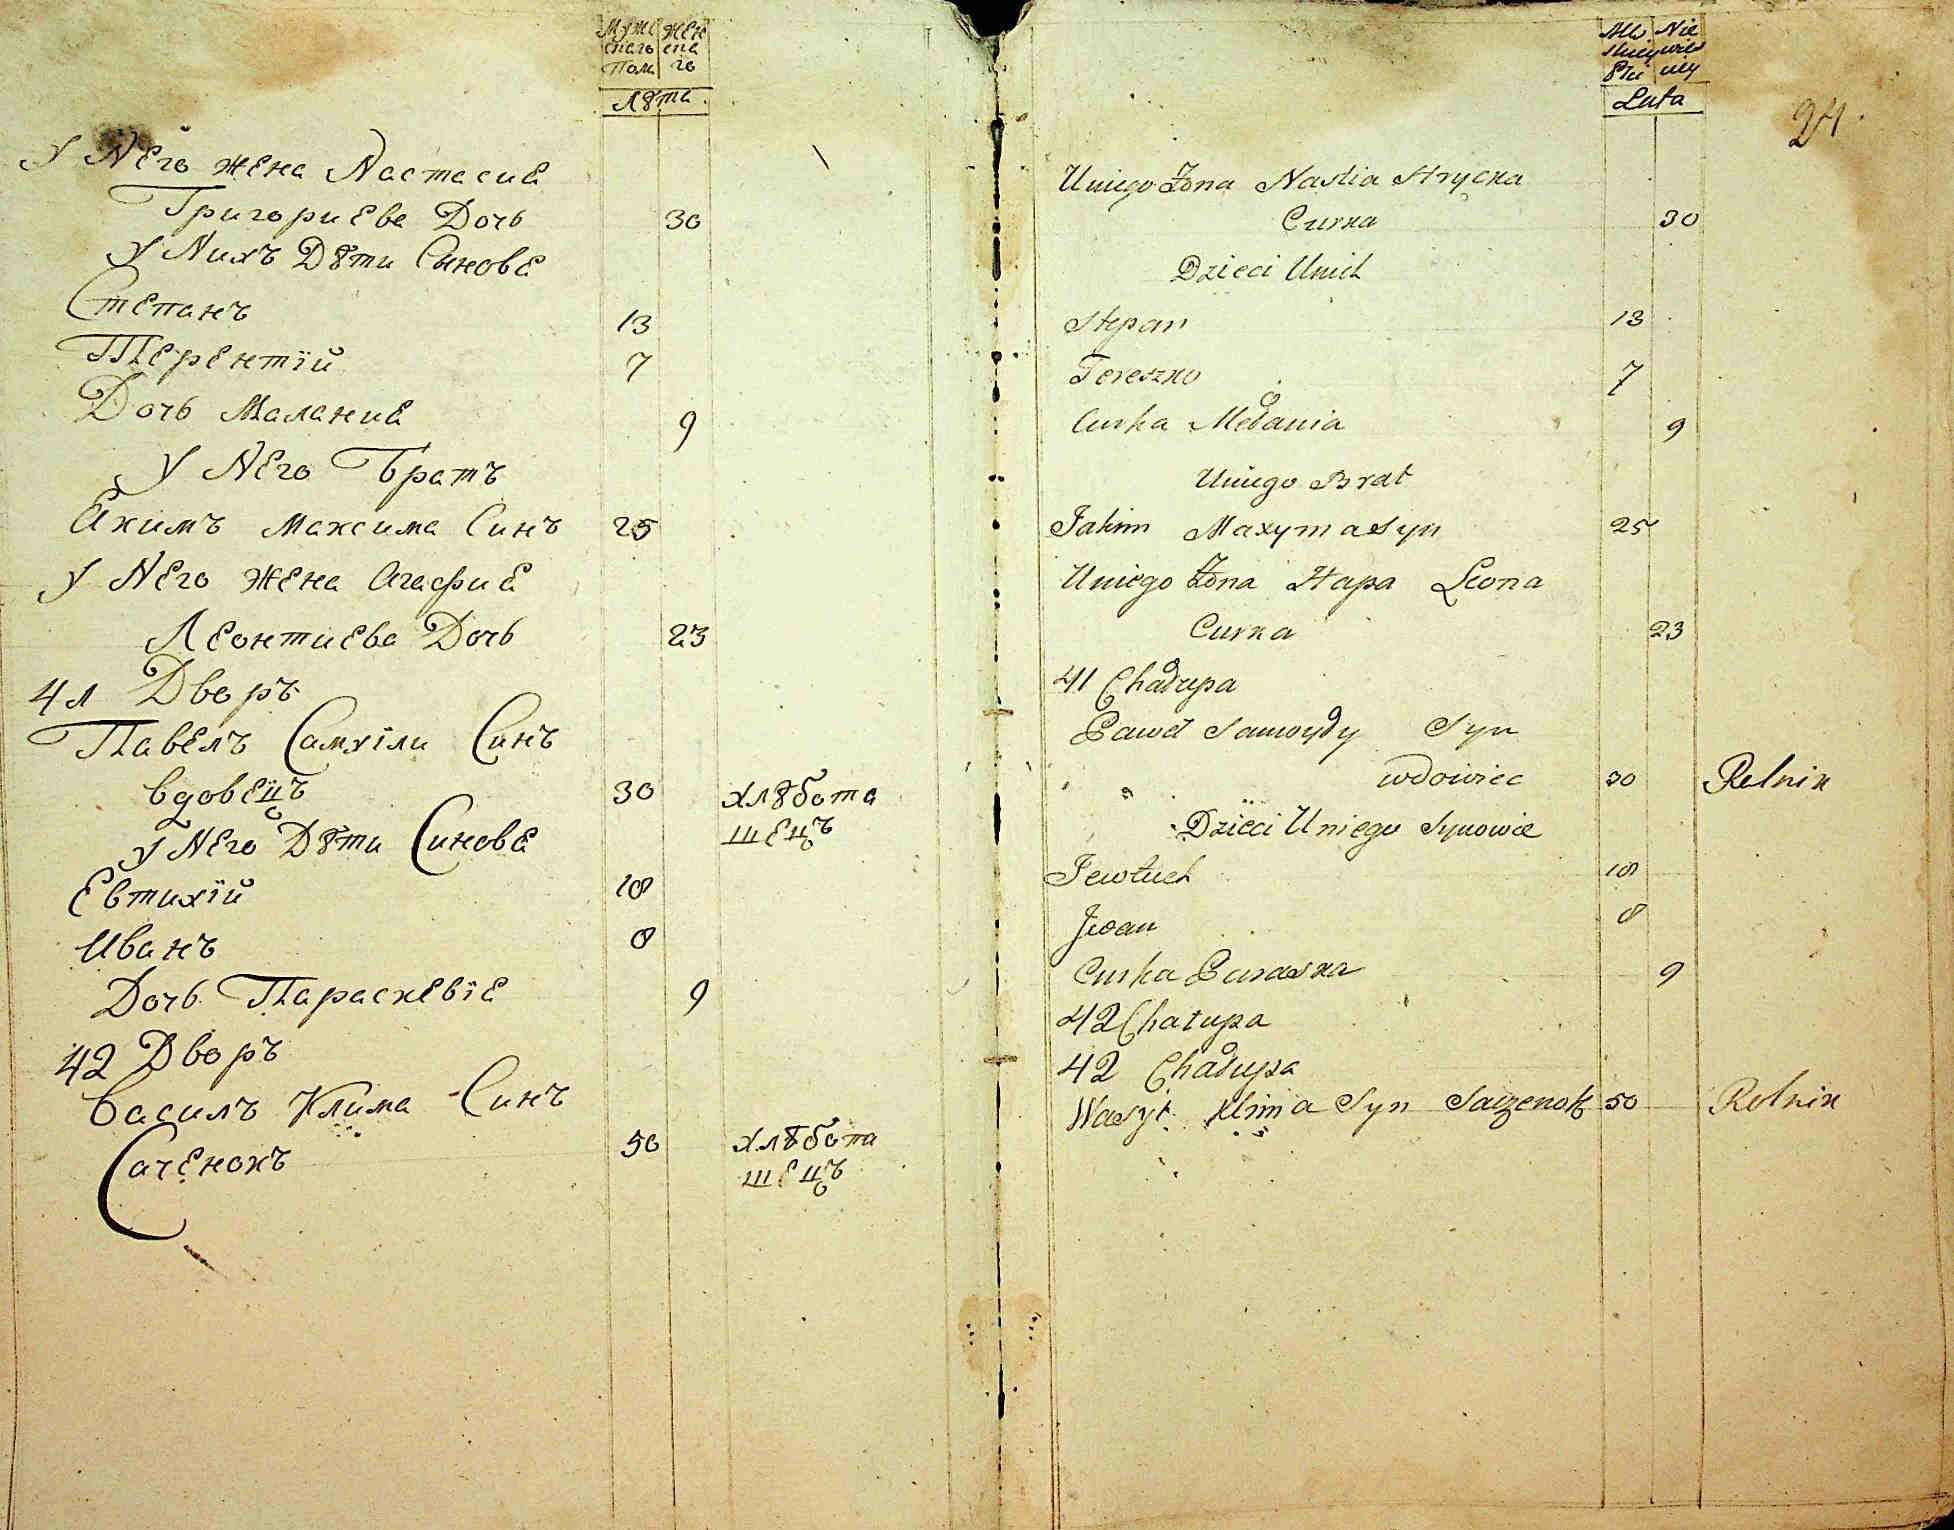 Муже Жен
скаго ска
Пола го
Лѣта
У Него жена Настасиа
Григориева Дочь 30
У Нихъ Дѣти Синовѧ
Степанъ 13
Терентїй 7
Дочь Маланиа 9
У Него Братъ
Акимъ Максима Синъ 25
У Него жена Агафиа
Леонтиева Дочь 23
41 Дворъ
Павелъ Самуїли Синъ
вдовецъ 30 хлѣбопа
У Него Дѣти Синова шецъ
Евтихїй 10
Иванъ 8
Дочь Параскевїа 9
42 Дворъ
Василъ Клима Синъ
Саченокъ 50 хлѣбопа
шецъ
Lata
24
Uniego Żona Nastia Hrycka
Curka 30
Dzieci Unich
Stepan 13
Tereszko 7
Curka Mełania 9
Uniego Brat
Jakim Maxyma Syn 25
Uniego Żona Hapa Leona
Curka 23
41 Chałupa
Paweł Samoyły Syn
wdowiec 30 Rolnik
Dzieci Uniego Synowie
Jewtuch 10
Jwan 8
Curka Paraska 9
42 Chatupa
42 Chałupa
Wasyl Klima Syn Saczenok 50 Rolnik